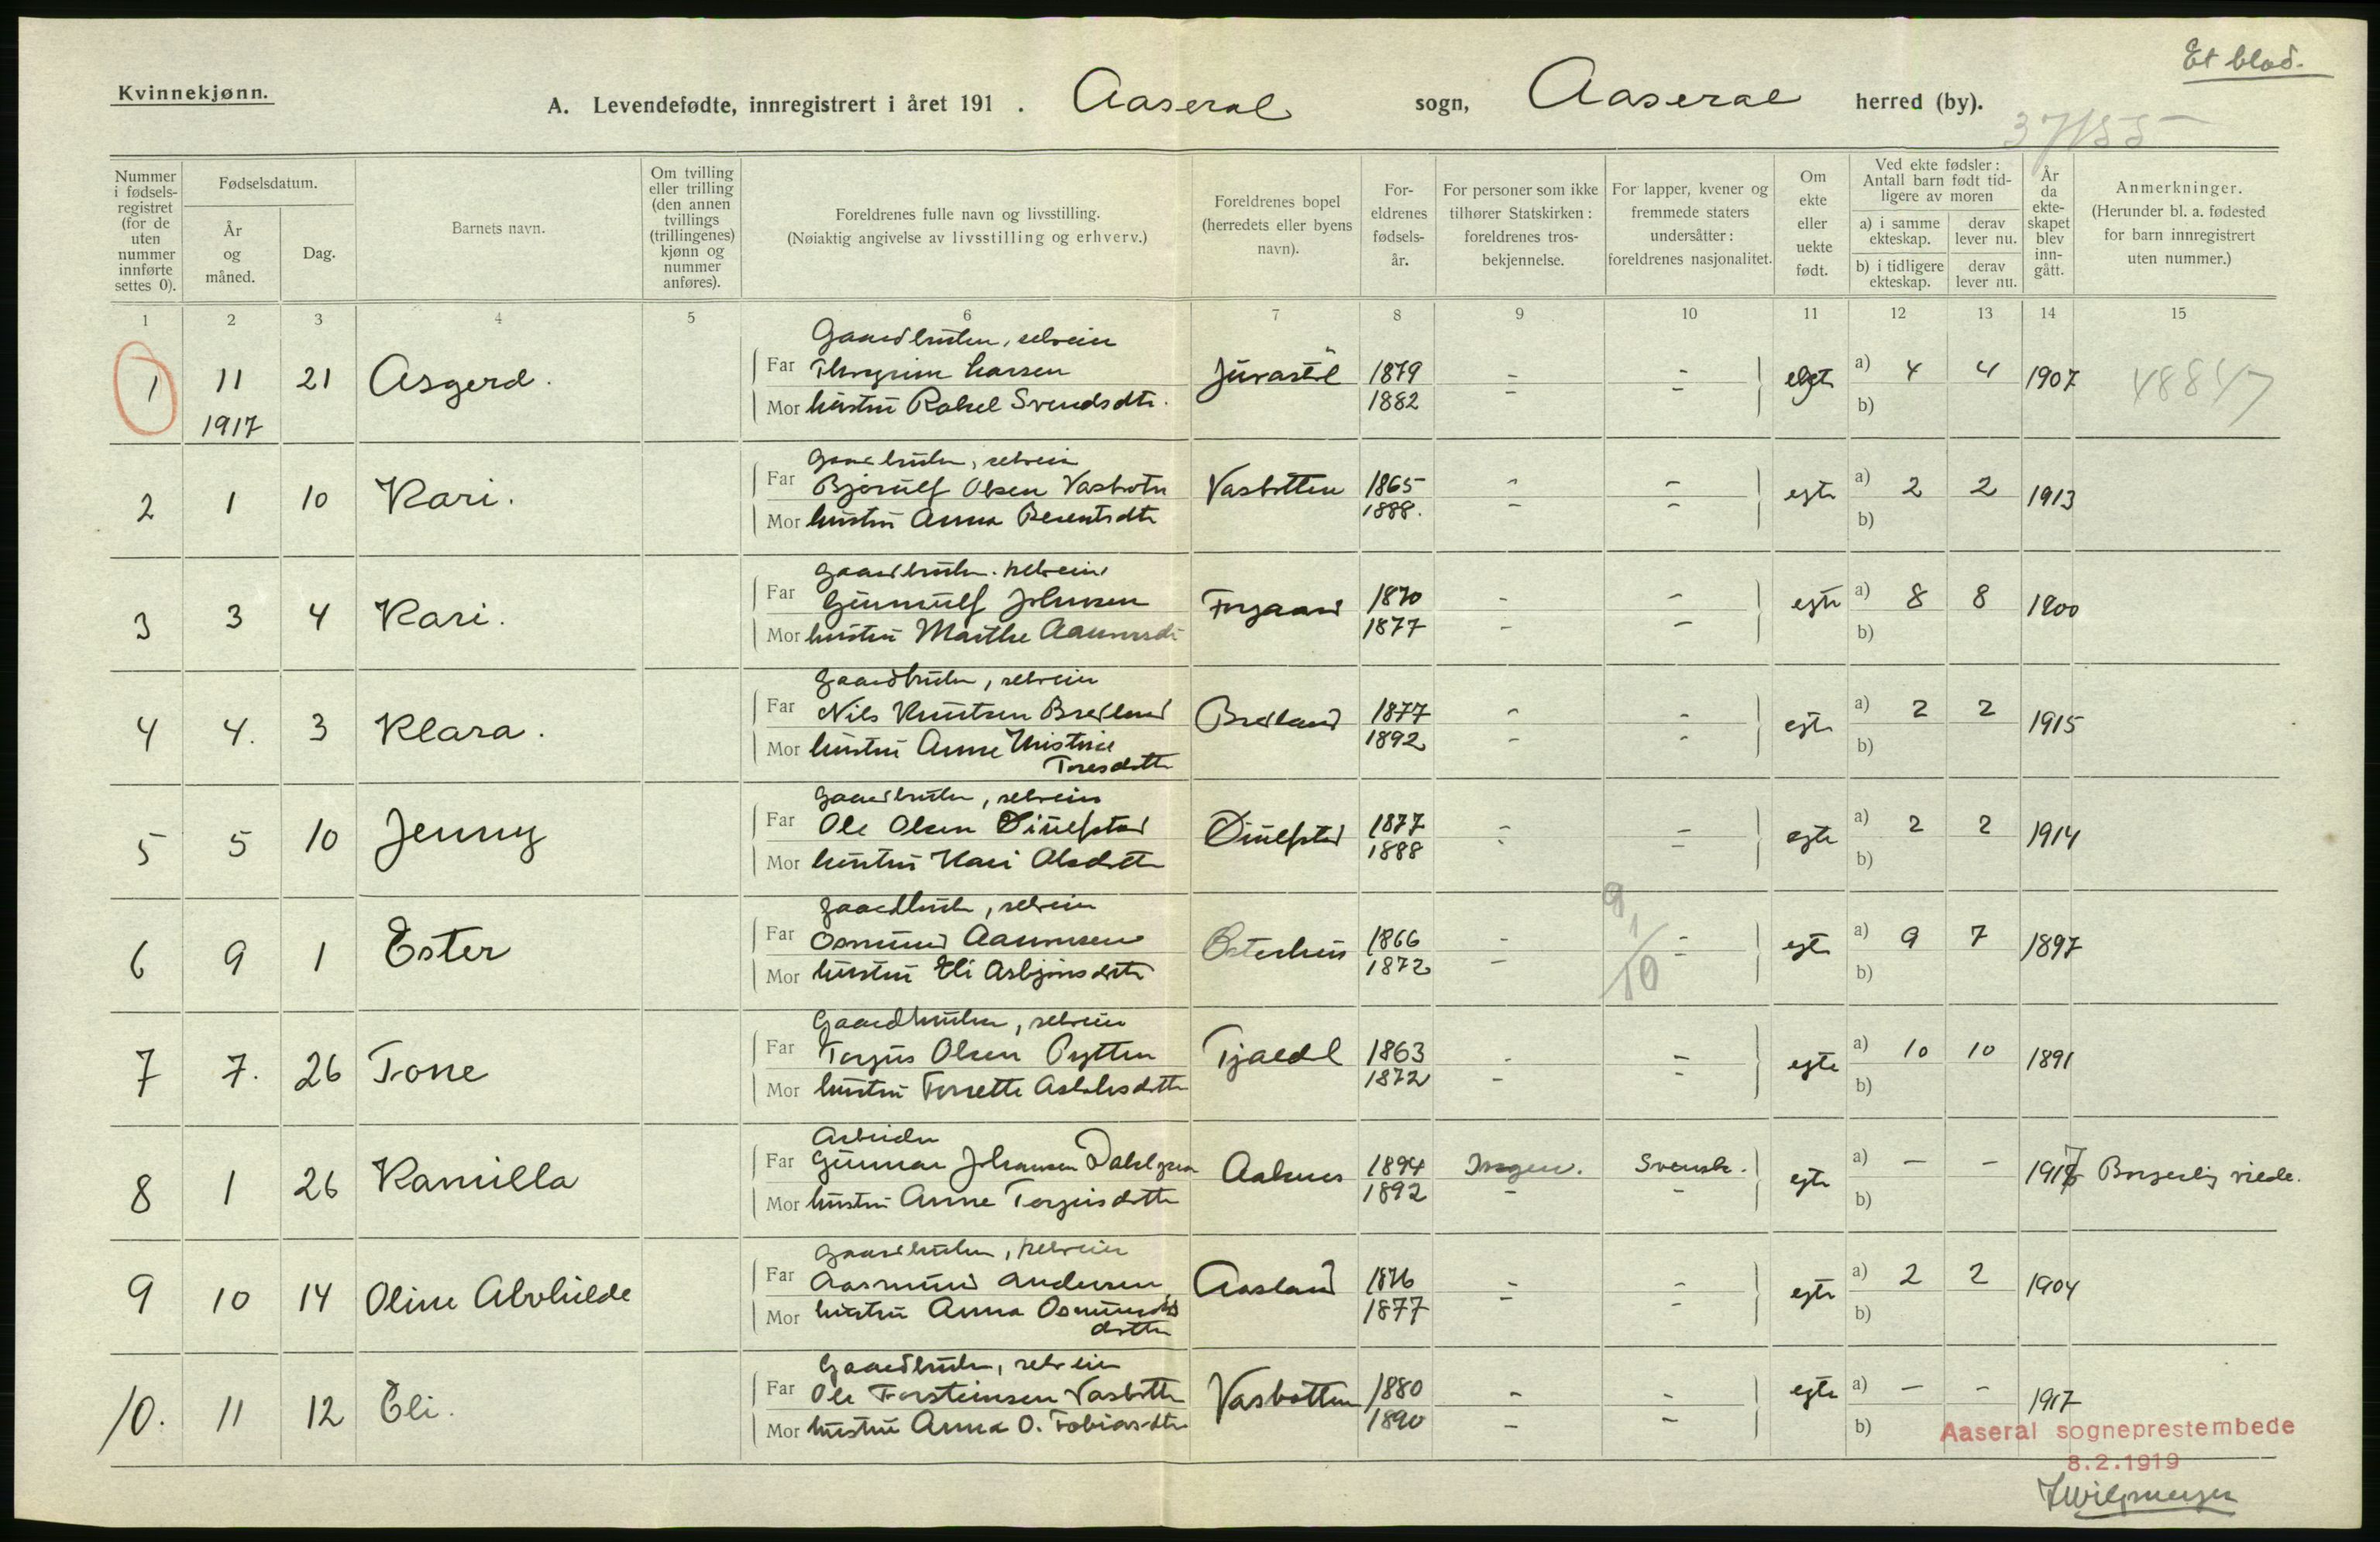 Et blad.
Kvinnekjønn.
A. Levendefødte, innregistrert i året 191 . Aaseral sogn, Aaseral herred (by).
37/155
Nummer i fødsels-registret (for de uten nummer innførte settes 0).
Fødselsdatum.
År og måned.
Dag.
Barnets navn.
Om tvilling eller trilling (den annen tvillings (trillingenes) kjønn og nummer anføres).
Foreldrenes fulle navn og livsstilling.
(Nøiaktig angivelse av livsstilling og erhverv.)
Foreldrenes bopel (herredets eller byens navn).
For-eldrenes fødsels-år.
For personer som ikke tilhører Statskirken: foreldrenes tros-bekjennelse.
For lapper, kvener og fremmede staters undersåtter: foreldrenes nasjonalitet.
Om ekte eller uekte født.
Ved ekte fødsler: Antall barn født tid-ligere av moren
a) i samme ekteskap.
derav lever nu.
b) i tidligere ekteskap.
derav lever nu.
År da ekte-skapet blev inn-gått.
Anmerkninger.
(Herunder bl. a. fødested for barn innregistrert uten nummer.)
1 2 3 4 5 6 7 8 9 10 11 12 13 14 15
Gaardbruker, selveier
1 11 21 Asgerd. Far Thorgrim Larsen 1879 - - a) 4 4 1907 48847
1917 Mor hustru Rakel Svendsdtr. 1882 - - b)
Gaardbruker, selveier
2 1 10 Kari. Far Bjørulf Olsen Vasbotn Vasbotten 1865 - - egte a) 2 2 1913
Mor hustru Anna Berentsdtr 1888. - - b)
Gaardbruker. selveier
3 3 4 Kari. Far Gunnulf Johnsen 1870 - - egte a) 8 8 1900
Mor hustru Marthe 1877 - - b)
Gaardbruker, selveier
4 4. 3 Klara. Far Nils Knutsen Bredland Bredland 1877 - - egte a) 2 2 1915
Mor hustru Anne Kristine 1892 - - b)
Toresdatter
Gaardbruker, selveier
5 5 10 Jenny Far Ole Olsen Øiulfstad Øiulfstad 1877 - - egte a) 2 2 1914
Mor hustru Kari Olsdatter 1888 b)
Gaardbruker, selveier
9
6 9 1 Ester Far Osmund Aanunsen Østerhus 1866 - 1/10 - egte a) 9 7 1897
Mor hustru Eli Asbjørnsdatter 1872 - b)
Gaardbruker, selveier
7 7. 26 Tone Far Torjus Olsen Pytten 1863 - - egte a) 10 10 1891
Mor hustru Torsette 1872 - - b)
Arbeider
8 1 26 Kamilla Far Gunnar Johansen Dahlgren Aaknes 1894 Ingen. Svensk. egte a) - - 1917 Borgerlig viede.
Mor hustru Anne Torjusdatter 1892 - - b)
Gaardbruker, selveier
9 10 14 Oline Alvhilde Far Aasmund Andersen Aasland 1876 - - egte a) 2 2 1904
Mor hustru Anna Osmunds 1877 - - b)
datter
Gaardbruker, selveier
10. 11 12 Eli. Far Ole Torsteinsen Vasbotten Vasbotten 1880 - - egte a) - - 1917
Mor hustru Anna O. Tobiasdtr 1890 - - b)
Aaseral sogneprestembede
8.2.1919